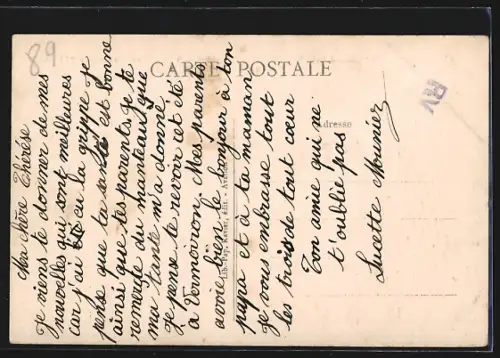 89
CARTE POSTALE
Adresse
RV
Ma chère Thérèse
Je viens te donner de mes
nouvelles qui sont meilleures
car j'ai eu la grippe je
pense que ta santé est bonne
ainsi que tes parents. Je te
remercie du manteau que
ma tante m'a donné
Je pense te revoir cet été
à Mes parents
avoie bien le bonjour à ton
papa et à ta maman
Je vous embrasse tout
les trois de tout cœur
Ton amie qui ne
t'oublie pas
Lucette Meunier